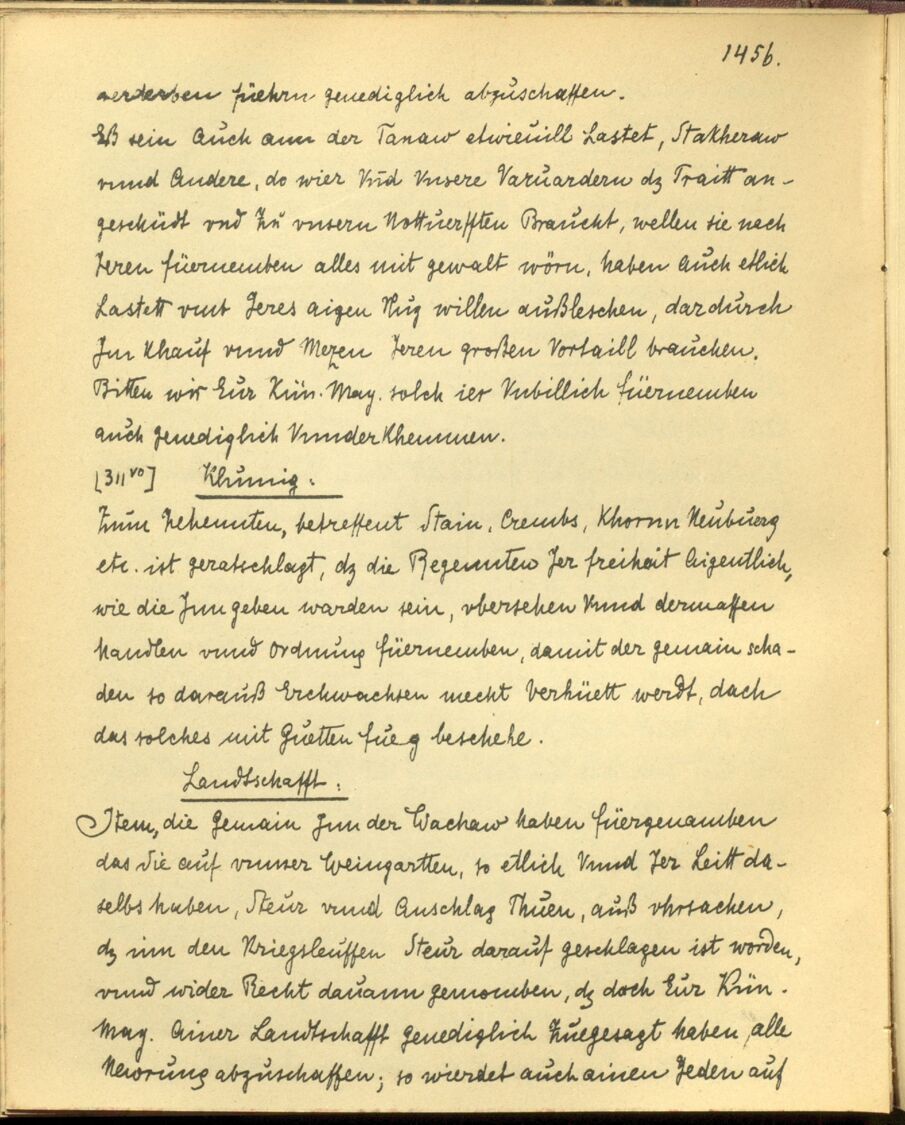 1456.
verderben füehrn genediglich abzuschaffen.
Eß sein Auch ann der Tanaw etwieuill Lastet, Stakheraw
vnnd Andere, do wier Vnd Vnsere Varuardern dz Traitt an-
geschüdt vnd Zu vnsern Nottuerfften Braucht, wellen sie nach
Jeren füernemben alles mit gewalt wörn, haben Auch etlich
Lastett vmb Jeres aigen Nuz willen außleschen, dardurch
Jm Khauf vnnd Mezen Jeren großen Vortaill brauchen.
Bitten wir Eur Kün. May. solch ier Vnbillich füernemben
auch genediglich Vnnderkhemmen.
[311vo] Khunig:
Zum Zehennten, betreffent Stain, Crembs, Khornn Neubuerg
etc. ist geratschlagt, dz die Regennten Jer freihait Aigentlich,
wie die Jnn geben warden sein, vbersehen Vnnd dermassen
handlen vnnd ordnung füernemben, damit der gemain scha-
den so darauß Erchwachsen mecht Verhüett werdt, dach
das solches mit Guetten fueg beschehe.
Landtschafft:
Item, die Gemain Jnn der Wachaw haben füergenamben
das Sie auf vnnser Weingartten, so etlich Vnnd Jer Leitt da-
selbs haben, Steur vnnd Anschlag Thuen, auß vhrsachen,
dz inn den Kriegsleuffen Steur darauf geschlagen ist worden,
vnnd wider Recht dauann genomben, dz doch Eur Kün.
May. Ainer Landtschafft genediglich Zuegesagt haben, alle
Neworung abzuschaffen; so wierdet auch ainen Jeden auf